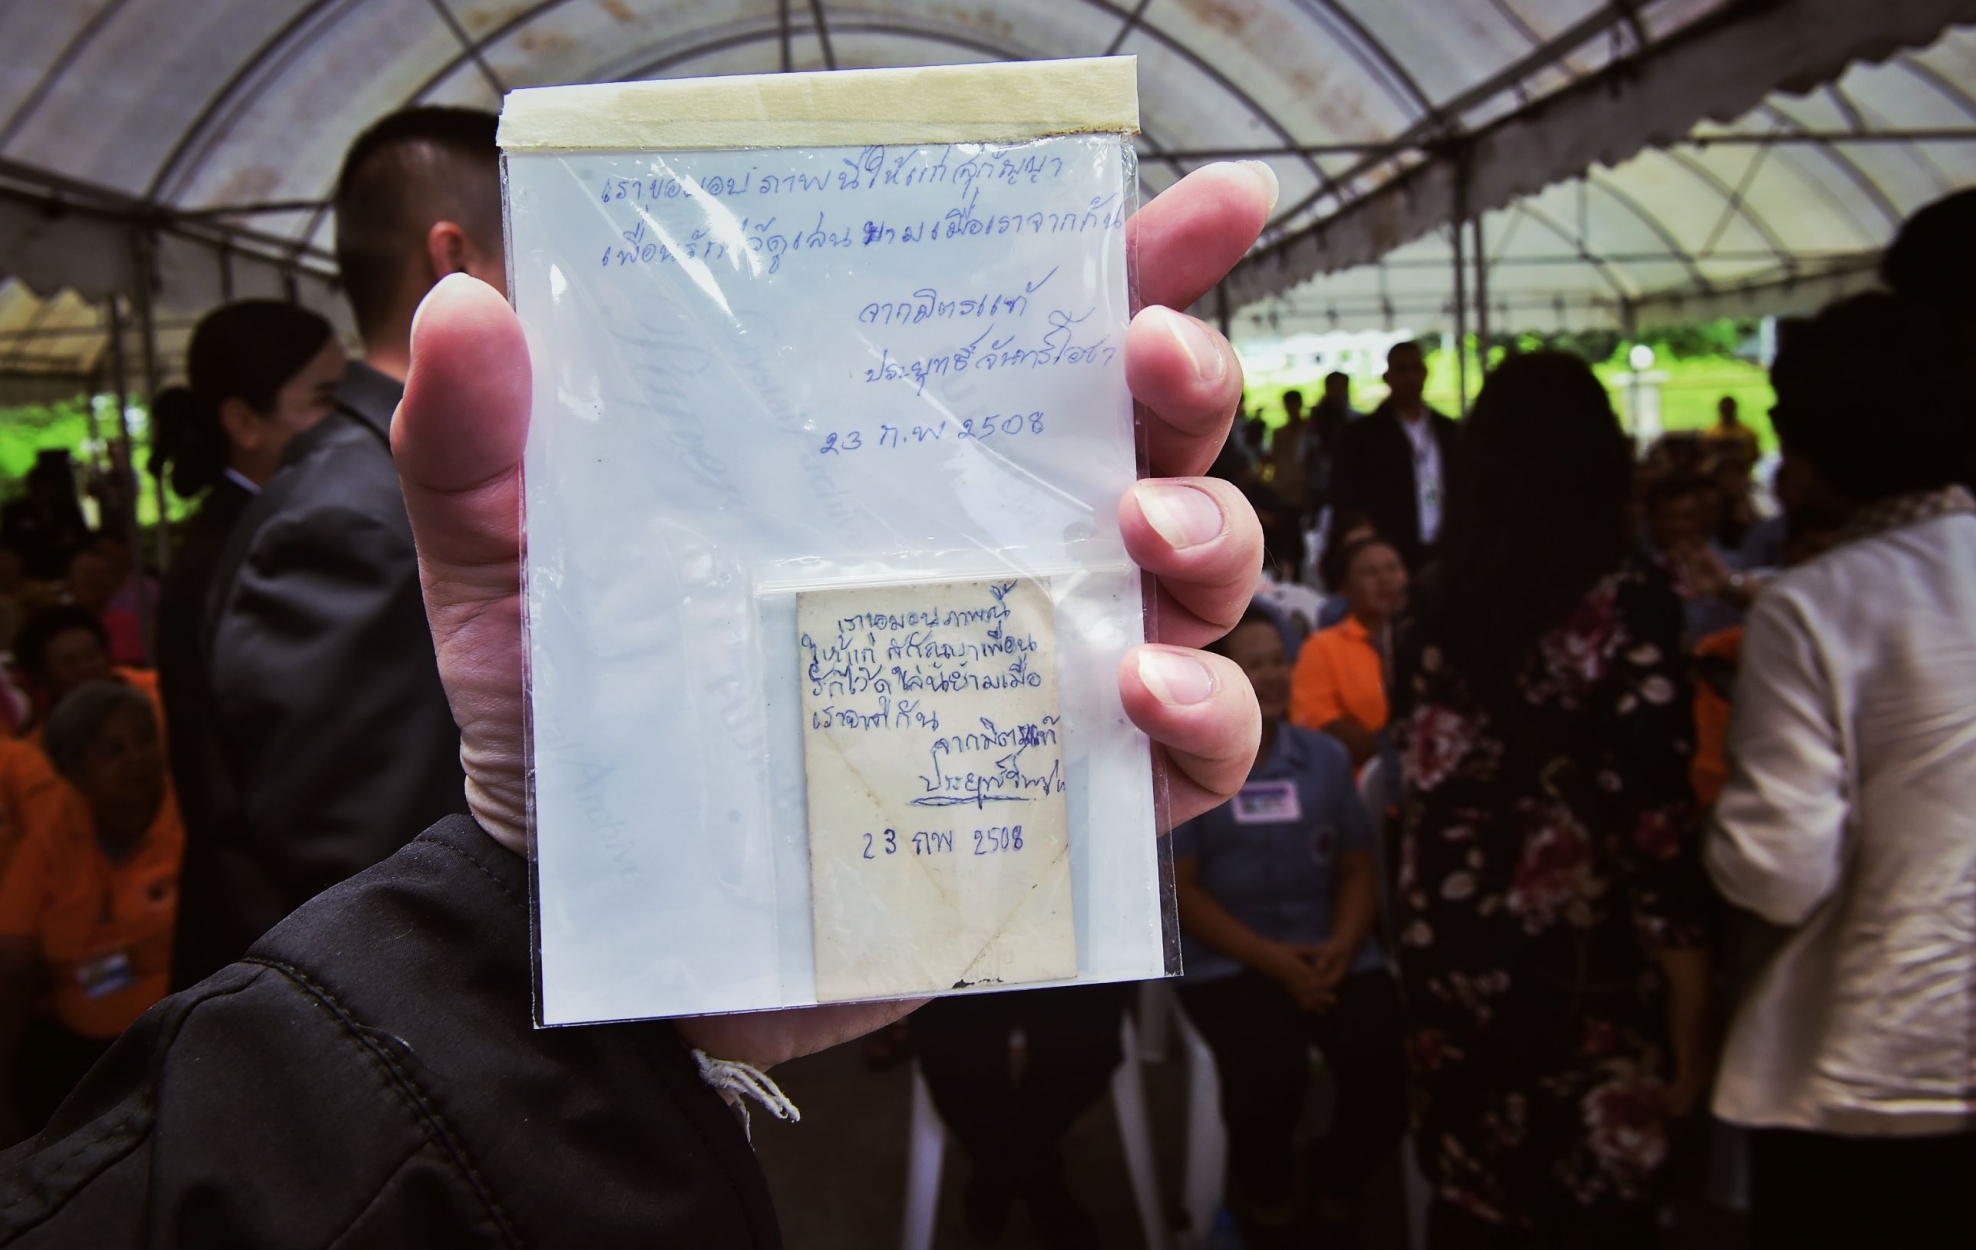 เราขอมอบภาพนี้ให้แก่สุกัญญา
เพื่อนรักไว้ดูเล่นยามเมื่อเราจากกัน
จากมิตรแท้
ประยุทธ์ จันทร์โอชา
23 ก.พ 2508
เราขอมอบภาพนี้
ให้แก่ เพื่อน
รักไว้ดูเล่นย้ามเมื่อ
เราจากกัน
จากมิตรแท้
23 กพ 2508